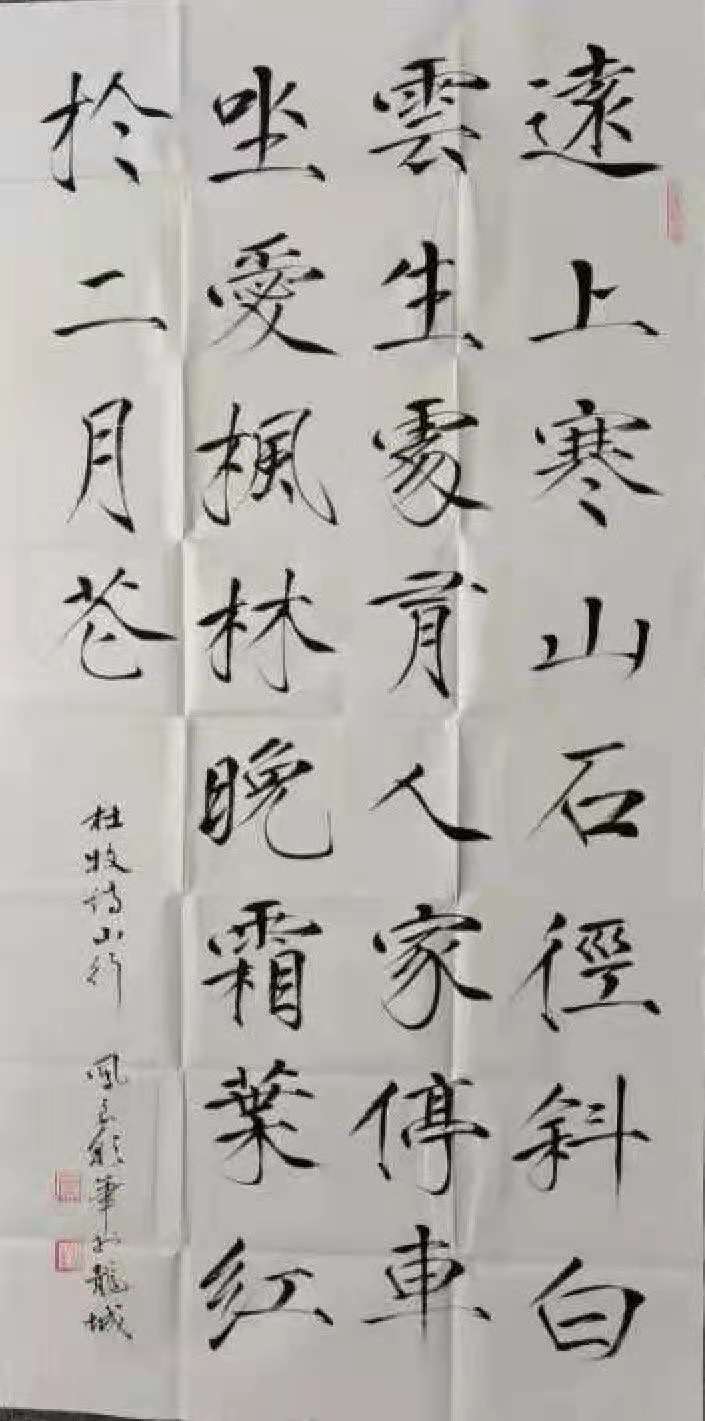 遠上寒山石徑斜白
雲生處有人家停車
坐愛楓林晚霜葉紅
於二月花
杜牧詩山行
龍城